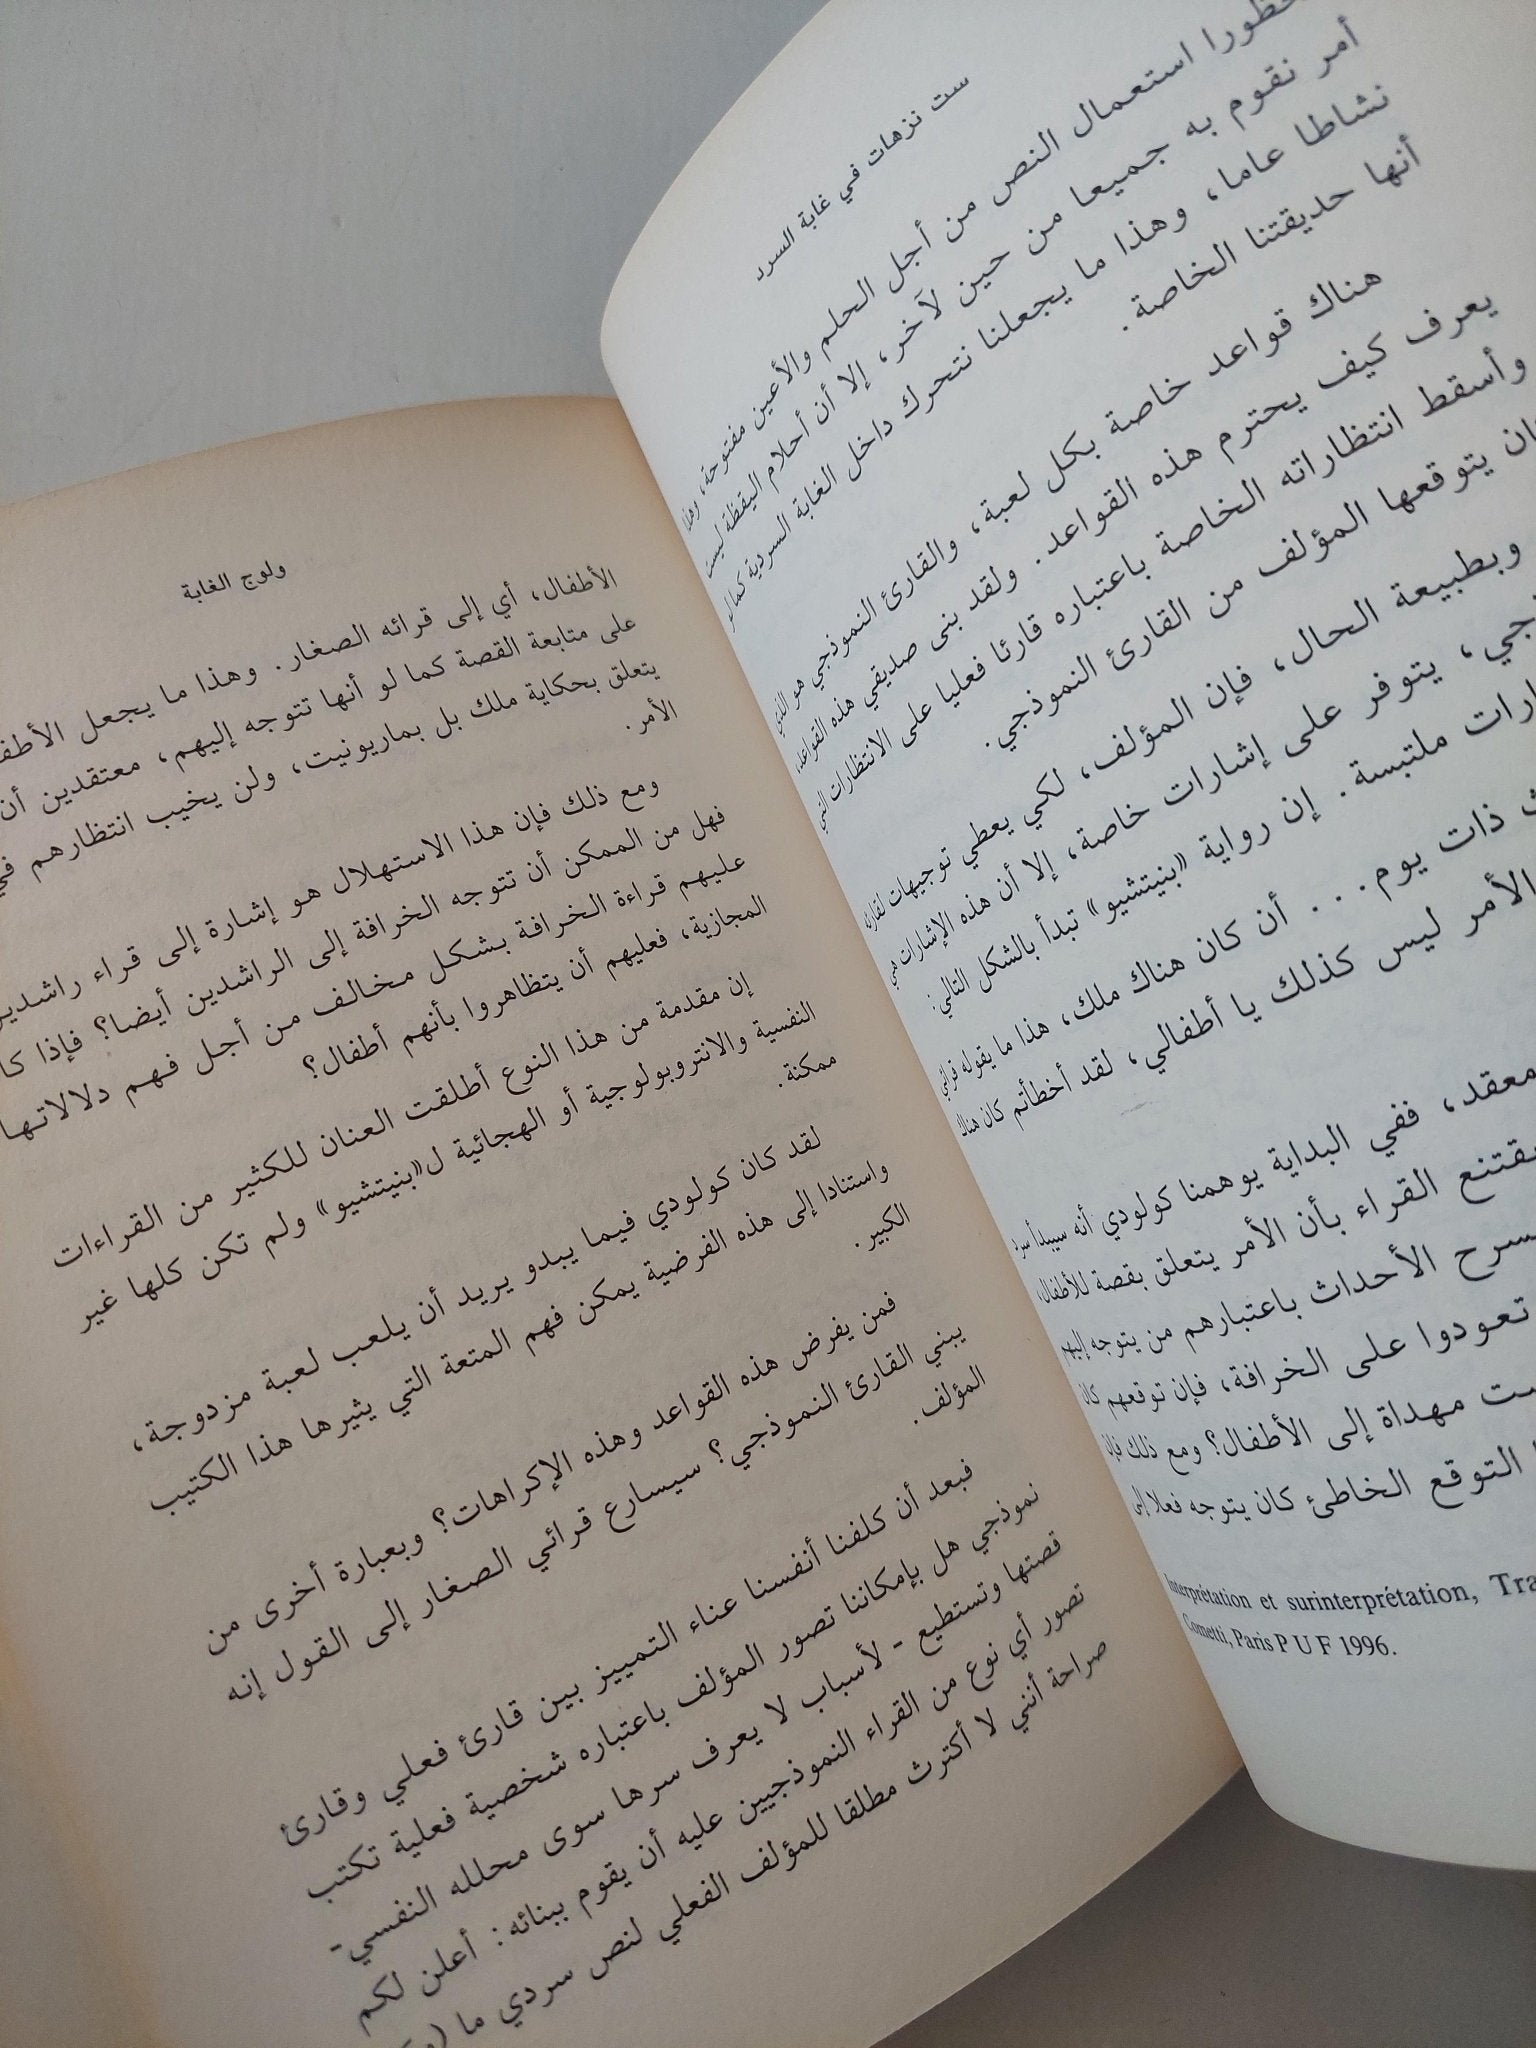 ست نزهات في غابة السرد
استعمال النص من أجل الحلم والأعين مفتوحة، وهذا
أمر نقوم به جميعا من حين لآخر، إلا أن أحلام اليقظة ليست
نشاطا عاما، وهذا ما يجعلنا نتحرك داخل الغابة السردية كما لو
أنها حديقتنا الخاصة.
هناك قواعد خاصة بكل لعبة، والقارئ النموذجي هو الذي
يعرف كيف يحترم هذه القواعد. ولقد بنى صديقي هذه القواعد،
وأسقط انتظاراته الخاصة باعتباره قارئا فعليا على الانتظارات التي
يتوقعها المؤلف من القارئ النموذجي.
وبطبيعة الحال، فإن المؤلف، لكي يعطي توجيهات لقارئه
يتوفر على إشارات خاصة، إلا أن هذه الإشارات هي
ملتبسة. إن رواية «بنيتشيو» تبدأ بالشكل التالي:
ذات يوم... أن كان هناك ملك، هذا ما يقوله قرائي
الأمر ليس كذلك يا أطفالي، لقد أخطأتم كان هناك
معقد، ففي البداية يوهمنا كولودي أنه سيبدأ سرد
القراء بأن الأمر يتعلق بقصة للأطفال،
الأحداث باعتبارهم من يتوجه إليهم
تعودوا على الخرافة، فإن توقعهم كان
مهداة إلى الأطفال؟ ومع ذلك فإن
التوقع الخاطئ كان يتوجه فعلا إلى
Interprétation et surinterprétation,
Cometti, Paris P U F 1996.
ولوج الغابة
الأطفال، أي إلى قرائه الصغار. وهذا ما يجعل
على متابعة القصة كما لو أنها تتوجه إليهم، معتقدين أن
يتعلق بحكاية ملك بل بماريونيت، ولن يخيب انتظارهم في
الأمر.
ومع ذلك فإن هذا الاستهلال هو إشارة إلى قراء
فهل من الممكن أن تتوجه الخرافة إلى الراشدين أيضا؟ فإذا
عليهم قراءة الخرافة بشكل مخالف من أجل فهم دلالاتها
المجازية، فعليهم أن يتظاهروا بأنهم أطفال؟
إن مقدمة من هذا النوع أطلقت العنان للكثير من القراءات
النفسية والانتروبولوجية أو الهجائية ل«بنيتشيو» ولم تكن كلها غير
ممكنة.
لقد كان كولودي فيما يبدو يريد أن يلعب لعبة مزدوجة،
واستنادا إلى هذه الفرضية يمكن فهم المتعة التي يثيرها هذا الكتيب
الكبير.
فمن يفرض هذه القواعد وهذه الإكراهات؟ وبعبارة أخرى من
يبني القارئ النموذجي؟ سيسارع قرائي الصغار إلى القول إنه
المؤلف.
فبعد أن كلفنا أنفسنا عناء التمييز بين قارئ فعلي وقارئ
نموذجي هل بإمكاننا تصور المؤلف باعتباره شخصية فعلية تكتب
قصتها وتستطيع - لأسباب لا يعرف سرها سوى محلله النفسي-
تصور أي نوع من القراء النموذجيين عليه أن يقوم ببنائه: أعلن لكم
صراحة أنني لا أكترث مطلقا للمؤلف الفعلي لنص سردي ما